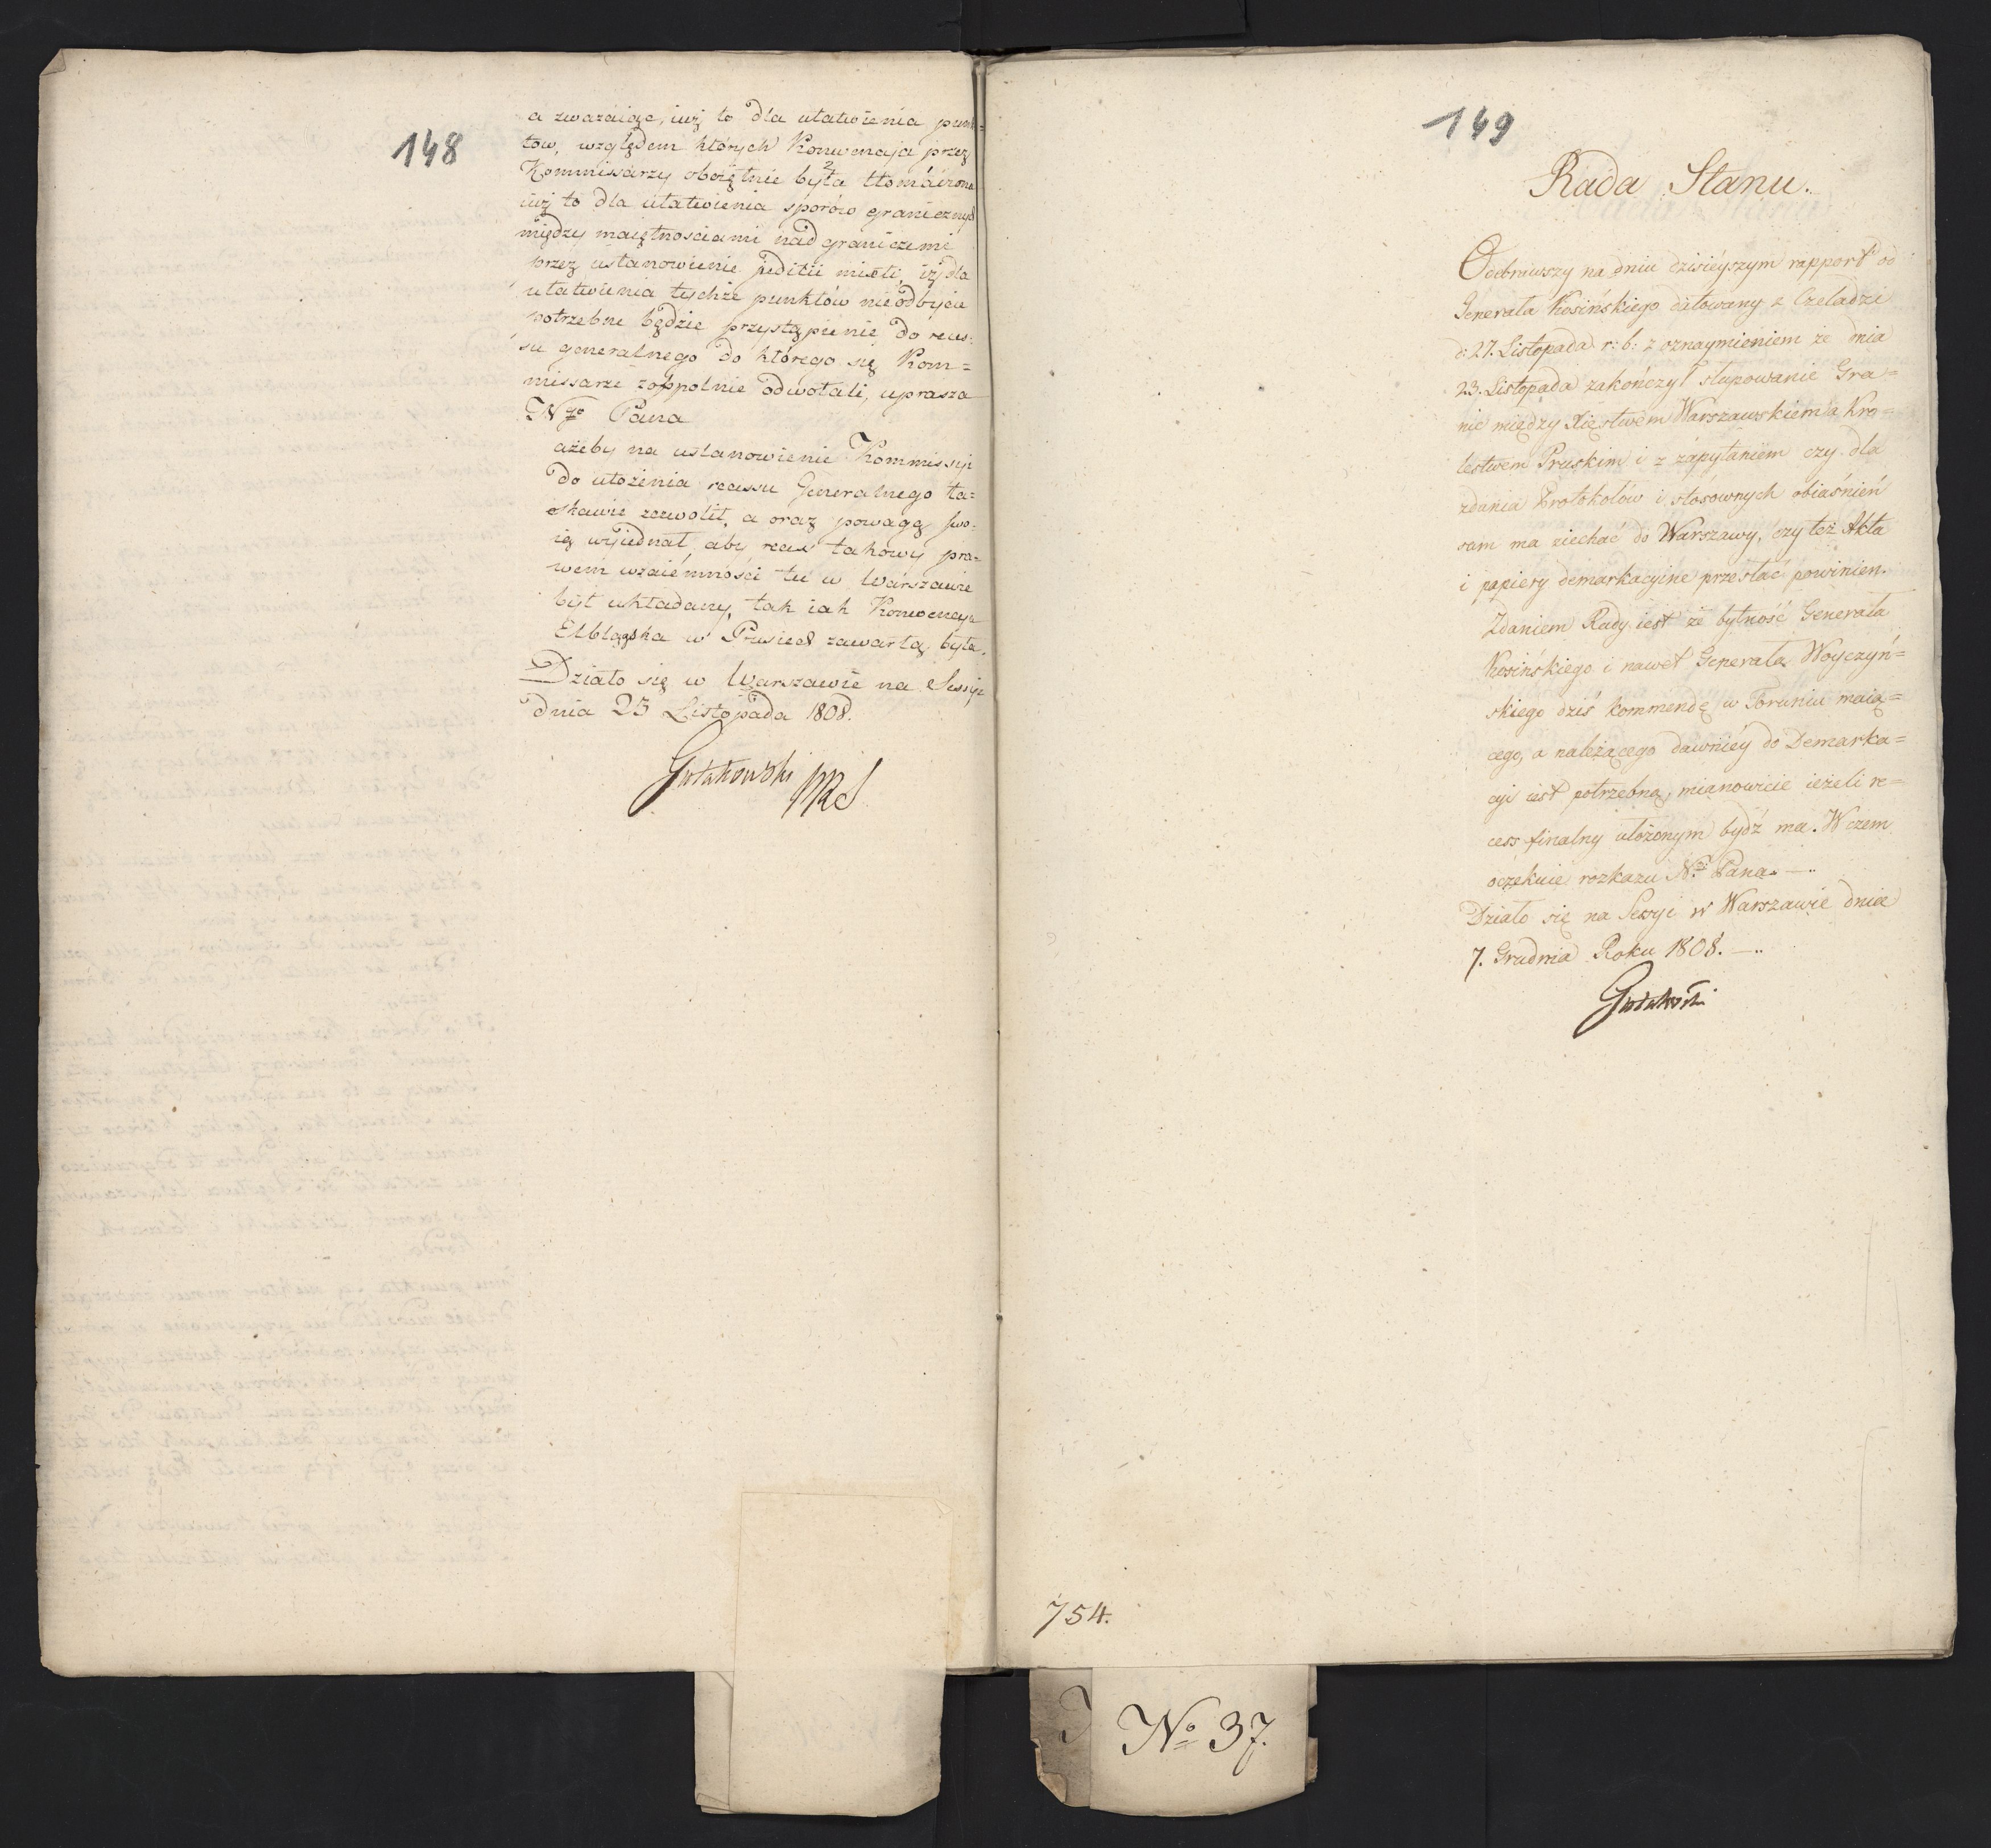 148
a zważaiąc, iuż to dla ułatwienia punk=
tow, względem których Konwencja przez
Kommissarzy oboiętnie była tłomáczona
iuż to dla ułatwienia sporów granicznych
między maiętnościami nadgraniczemi
przez ustanowienie mieli, iż dla
ułatwienia tychże punktów nieodbycie
potrzebne będzie przystąpienie do reces:
su generalnego do którego się Kom=
missarze zoppolnie odwołali, uprasza
N. Pana
ażeby na ustanowienie Kommissyi
do ułożenia recessu Generalnego ła=
skawie zezwolił, a oraz powagą swo:
ią wyiednał, aby reces takowy pra=
wem wzaiemności tu w Warszawie
był układany, tak iak Konwencya
Elblągska w Prusiech zawartą była.
Działo się w Warszawie na Sessyi
dnia 23 Listopada 1808.
Gutakowski PRS
149
Rada Stanu.
Odebrawszy na dniu dzisieyszym rapport od
Generała Kosińskiego datowany z Czeladzi
d: 27. Listopada r: b: z oznaymieniem że dnia
23. Listopada zakończył słupowanie Gra=
nic między Xięstwem Warszawskiem a Kro=
lestwem Pruskim i z zápytaniem czy dla
zdania Protokołów i stósownych obiaśnień
sam ma ziechać do Warszawy, czy też Akta
i papiery demarkacyine przesłać powinien.
Zdaniem Rady iest że bytność Generała
Kosińskiego i nawet Generała Woyczyń=
skiego dziś kommendę w Toruniu maią=
cego, a należącego dawniéy do Demarka=
cyi iest potrzebną, mianowicie ieżeli re=
cess finalny ułożonym bydź ma. W czem
oczekuie rozkazu N. Pana. —
Działo się na Sessyi w Warszawie dnia
7. Grudnia Roku 1808. —
Gutakowski
754.
No 37.